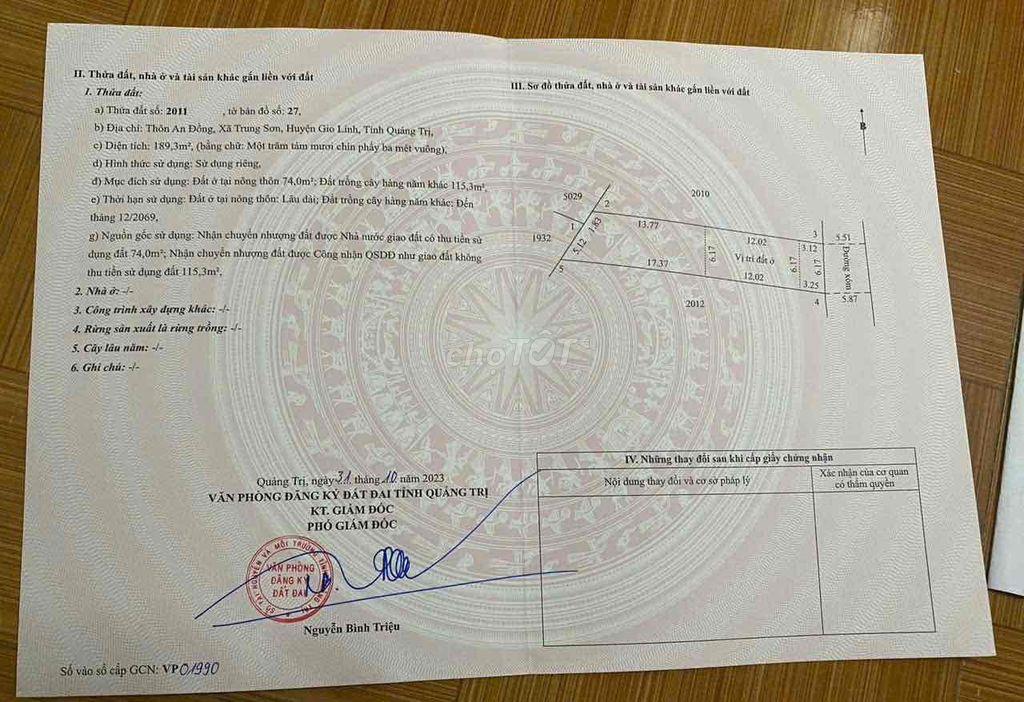 II. Thửa đất, nhà ở và tài sản khác gắn liền với đất
1. Thửa đất:
a) Thửa đất số: 2011 , tờ bản đồ số: 27,
b) Địa chỉ: Thôn An Đồng, Xã Trung Sơn, Huyện Gio Linh, Tỉnh Quảng Trị,
c) Diện tích: 189,3m², (bằng chữ: Một trăm tám mươi chín phẩy ba mét vuông),
d) Hình thức sử dụng: Sử dụng riêng,
đ) Mục đích sử dụng: Đất ở tại nông thôn 74,0m²; Đất trồng cây hàng năm khác 115,3m²,
e) Thời hạn sử dụng: Đất ở tại nông thôn: Lâu dài; Đất trồng cây hàng năm khác: Đến
tháng 12/2069,
g) Nguồn gốc sử dụng: Nhận chuyển nhượng đất được Nhà nước giao đất có thu tiền sử
dụng đất 74,0m²; Nhận chuyển nhượng đất được Công nhận QSDĐ như giao đất không
thu tiền sử dụng đất 115,3m²,
2. Nhà ở: -/-
3. Công trình xây dựng khác: -/-
4. Rừng sản xuất là rừng trồng: -/-
5. Cây lâu năm: -/-
6. Ghi chú: -/-
Quảng Trị, ngày 31 tháng 10 năm 2023
VĂN PHÒNG ĐĂNG KÝ ĐẤT ĐAI TỈNH QUẢNG TRỊ
KT. GIÁM ĐỐC
PHÓ GIÁM ĐỐC
SỞ TÀI NGUYÊN VÀ MÔI TRƯỜNG TỈNH QUẢNG TRỊ
VĂN PHÒNG
ĐĂNG KÝ
ĐẤT ĐAI
Nguyễn Bình Triệu
Số vào sổ cấp GCN: VP01990
III. Sơ đồ thửa đất, nhà ở và tài sản khác gắn liền với đất
B
5029
2
2010
1932
1
1.83
5.12
5
13.77
17.37
6.17
12.02
Vị trí đất ở
12.02
6.17
3
3.12
6.17
3.25
4
5.51
Đường xóm
5.87
2012
chợTỐT
IV. Những thay đổi sau khi cấp giấy chứng nhận
Nội dung thay đổi và cơ sở pháp lý
Xác nhận của cơ quan
có thẩm quyền